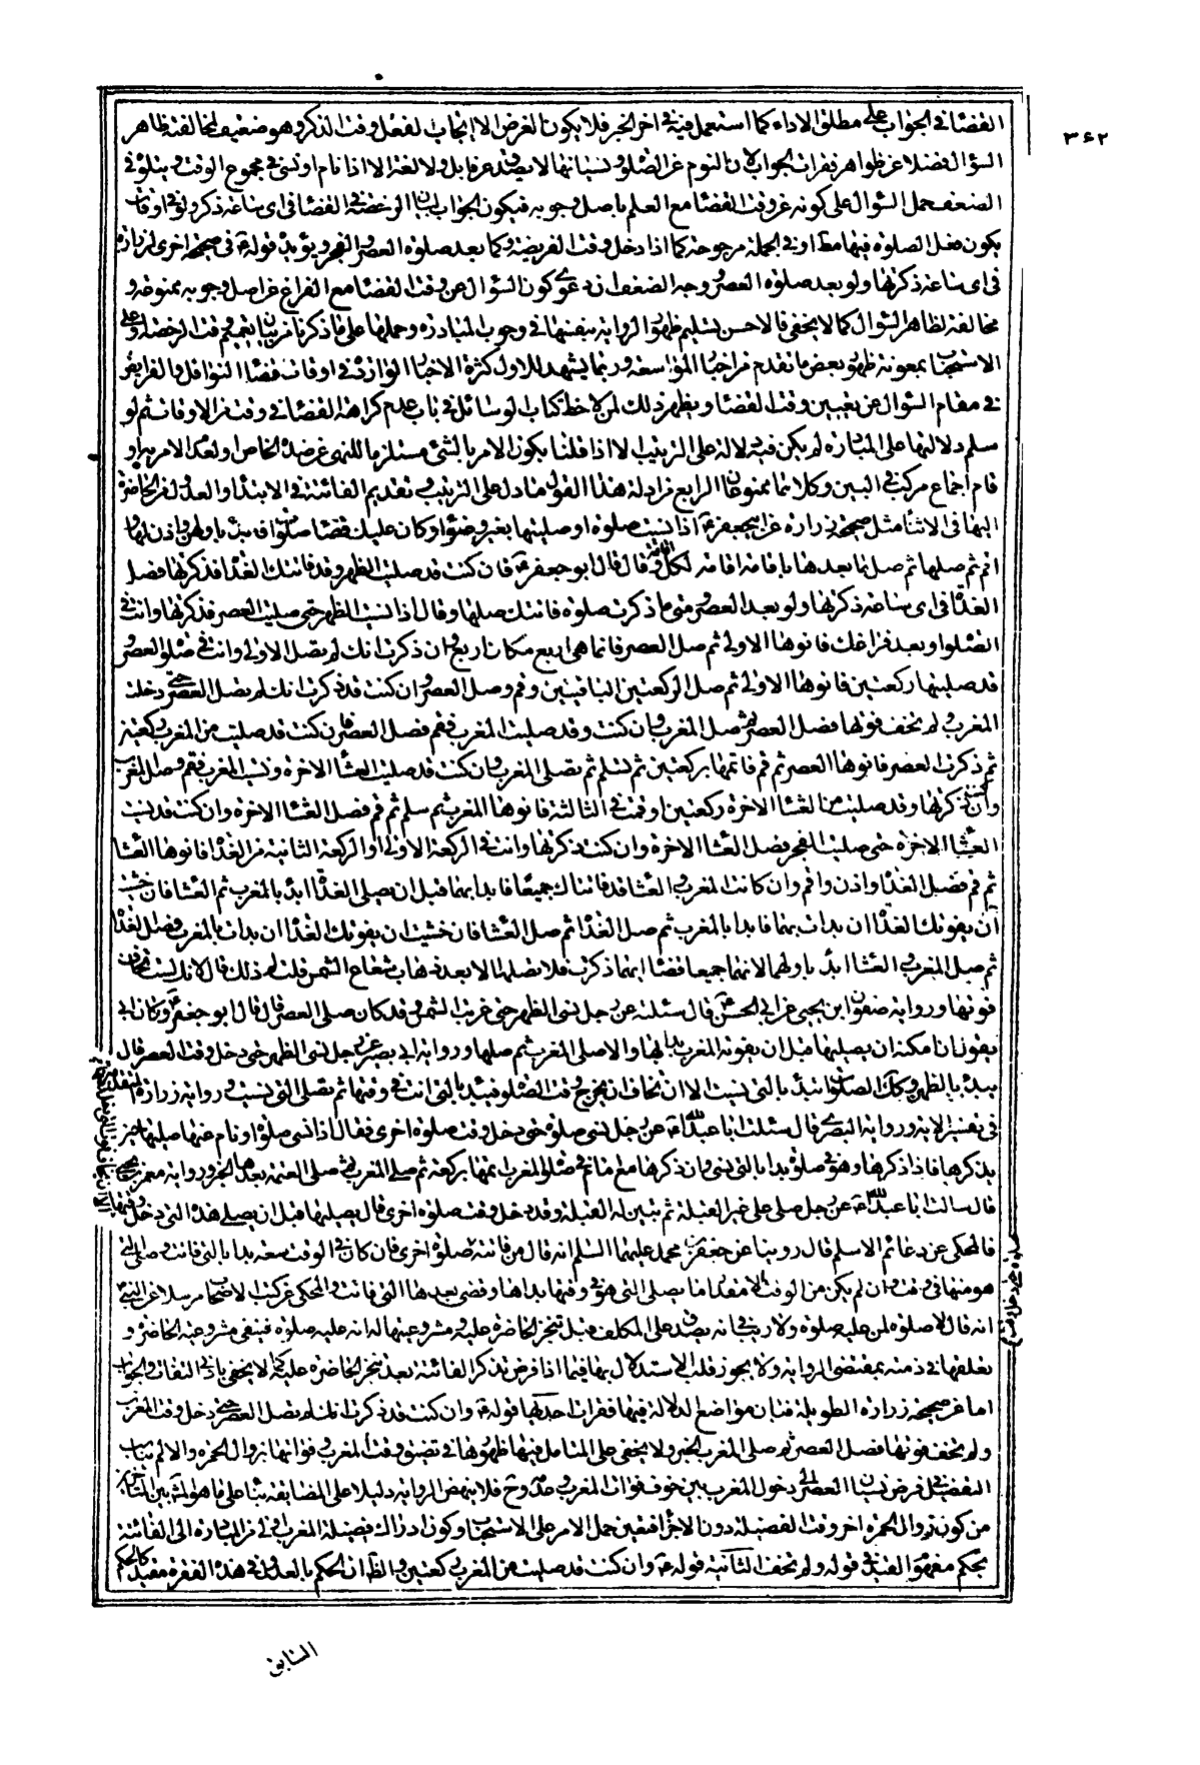 ٣٤٢
القضاء في الجواب على مطلق الاداء كما استعمل فيه في اخر الخبر فلا يكون الغرض الا ايجاب الفعل وقت الذكر وهو ضعيف لمخالفته ظاهر
السؤال فضلا عن ظواهر فقرات الجواب لان النوم عن الصلوة ونسيانها لا يصدق عرفا بل ولا لغة الا اذا نام او نسى في مجموع الوقت ويتلوه في
الضعف حمل السؤال على كونه عن وقت القضاء مع العلم باصل وجوبه فيكون الجواب لبيان الرخصة في القضاء في اى ساعة ذكر ولو في اوقات
يكون فعل الصلوة فيها مط او في الجملة مرجوحة كما اذا دخل وقت الفريضة وكما بعد صلوة العصر والفجر ويؤيد قوله في صحيحة اخرى لزرارة
في اى ساعة ذكرتها ولو بعد صلوة العصر وجه الضعف ان دعوى كون السؤال عن وقت القضاء مع الفراغ عن اصل وجوبه ممنوعة و
مخالفة لظاهر السؤال كما لا يخفى فالاحسن تسليم ظهور الرواية بنفسها في وجوب المبادرة وحملها على ما ذكرنا من بيان تعميم وقت الرخصة او على
الاستحباب بمعونة ظهور بعض ما تقدم من اخبار المواسعة وربما يشهد للاول كثرة الاخبار الواردة في اوقات قضاء النوافل والفرايض
في مقام السؤال عن تعيين وقت القضاء ويظهر ذلك لمن لاحظ كتاب الوسائل في باب عدم كراهة القضاء في وقت من الاوقات ثم لو
سلم دلالتها على المبادرة لم يكن فيه دلالة على الترتيب الا اذا قلنا بكون الامر بالشئ مستلزما للنهى عن ضده الخاص او لعدم الامر به او
قام اجماع مركب في البين وكلاهما ممنوعان الرابع من ادلة هذا القول ما دل على الترتيب وتقديم الفائتة في الابتداء والعدول من الحاضرة
اليها في الاثناء مثل صحيحة زرارة عن ابيجعفر ع اذا نسيت صلوة او صليتها بغير وضوء او كان عليك قضاء صلوات فابدء باولهن واذن لها و
اقم ثم صلها ثم صل ما بعدها باقامة اقامة لكل صلوة قال قال ابو جعفر ع فان كنت قد صليت الظهر وقد فاتتك الغداة فذكرتها فصل
الغداة في اى ساعة ذكرتها ولو بعد العصر ومتى ما ذكرت صلوة فاتتك صليتها وقال اذا نسيت الظهر حتى صليت العصر فذكرتها وانت في
الصلوة او بعد فراغك فانوها الاولى ثم صل العصر فانما هى اربع مكان اربع وان ذكرت انك لم تصل الاولى وانت في صلوة العصر و
قد صليت منها ركعتين فانوها الاولى ثم صل الركعتين الباقيتين وقم وصل العصر وان كنت قد ذكرت انك لم تصل العصر حتى دخلت
المغرب ولم تخف فوتها فصل العصر ثم صل المغرب وان كنت قد صليت المغرب فقم فصل العصر فان كنت قد صليت من المغرب ركعتين
ثم ذكرت العصر فانوها العصر ثم قم فاتمها بركعتين ثم تسلم ثم تصلى المغرب وان كنت قد صليت العشاء الاخرة ونسيت المغرب فقم وصل المغرب
وان كنت ذكرتها وقد صليت من العشاء الاخرة ركعتين او قمت في الثالثة فانوها المغرب ثم سلم ثم قم فصل العشاء الاخرة وان كنت قد نسيت
العشاء الاخرة حتى صليت الفجر فصل العشاء الاخرة وان كنت ذكرتها وانت في الركعة الاولى او الركعة الثانية من الغداة فانوها العشاء
ثم قم فصل الغداة واذن واقم وان كانت المغرب والعشاء قد فاتتاك جميعا فابدا بهما قبل ان تصلى الغداة ابدء بالمغرب ثم العشاء فان خشيت
ان يفوتك الغداة ان بدات بهما فابدا بالمغرب ثم صل الغداة ثم صل العشاء فان خشيت ان يفوتك الغداة ان بدات بالمغرب فصل الغداة
ثم صل المغرب والعشاء ابدء باولهما لانهما جميعا قضاء ايهما ذكرت فلا تصلهما الا بعد ذهاب شعاع الشمس قلت لم ذلك قال لانك لست تخاف
فوتها ورواية صفوان ابن يحيى عن ابى الحسن ع قال سئلته عن رجل نسى الظهر حتى غربت الشمس وقد كان صلى العصر قال قال ابو جعفر ع وكان ابى
يقول ان امكنه ان يصليها قبل ان يفوته المغرب بدا بها والا صلى المغرب ثم صلها ورواية ابى بصير عن رجل نسى الظهر حتى دخل وقت العصر قال
يبدء بالظهر وكك الصلوات تبدء بالتى نسيت الا ان تخاف ان يخرج وقت الصلوة فتبدء بالتى انت في وقتها ثم تصلى التى نسيت ورواية زرارة
في تفسير الاية ورواية البصرى قال سئلت ابا عبدالله ع عن رجل نسى صلوة حتى دخل وقت صلوة اخرى فقال اذا نسى صلوة او نام عنها صليها حين
يذكرها فاذا ذكرها وهو في صلوة بدا بالتى نسى وان ذكرها مع امام في صلوة المغرب اتمها بركعة ثم صلى المغرب ثم صلى العتمة بعدها الخبر ورواية معمر بن يحيى
قال سالت ابا عبدالله ع عن رجل صلى على غير القبلة ثم تبين له القبلة وقد دخل وقت صلوة اخرى قال يصليها قبل ان يصلى هذه التى دخل وقتها
فالمحكى عن دعائم الاسلام قال روينا عن جعفر بن محمد عليهما السلام انه قال من فاتته صلوة اخرى فان كان في الوقت سعة بدا بالتى فاتت وصلى التى
هو منها في وقت وان لم يكن من الوقت الا مقدار ما يصلى التى هو في وقتها بدا بها وقضى بعدها التى فاتت والمحكى عن كتب الاصحاب مرسلا عن النبى ص
انه قال لا صلوة لمن عليه صلوة ولا ريب في انه يصدق على المكلف قبل تنجز الحاضرة عليه ومشروعيتها له انه عليه صلوة فينفى مشروعية الحاضرة و
تعلقها في ذمته بمقتضى الرواية ولا يجوز قلب الاستدلال بها فيما اذا فرض تذكر الفائتة بعد تنجز الحاضرة عليه كما لا يخفى بادنى التفات والجواب
اما عن صحيحة زرارة الطويلة فبان مواضع الدلالة فيها فقرات احدها قوله ع وان كنت قد ذكرت انك لم تصل العصر حتى دخل وقت المغرب
ولم تخف فوتها فصل العصر ثم صلى المغرب الخبر ولا يخفى على المتامل فيها ظهورها في تضيق وقت المغرب وفواتها بزوال الحمرة والا لم يناسب
التفصيل في فرض نسيان العصر الى دخول المغرب بين خوف فوات المغرب وعدمه وح فلا ينهض الرواية دليلا على المضايقة بناء على ما هو المشهور بين المتاخرين
من كون زوال الحمرة اخر وقت الفضيلة دون الاجزاء فيتعين حمل الامر على الاستحباب وكون ادراك فضيلة المغرب اولى من المبادرة الى الفائتة
بحكم مفهوم القيد في قوله ولم تخف الثانية قوله ع وان كنت قد صليت من المغرب ركعتين والظ ان الحكم بالعدول في هذه الفقرة مقيد كالحكم
السابق